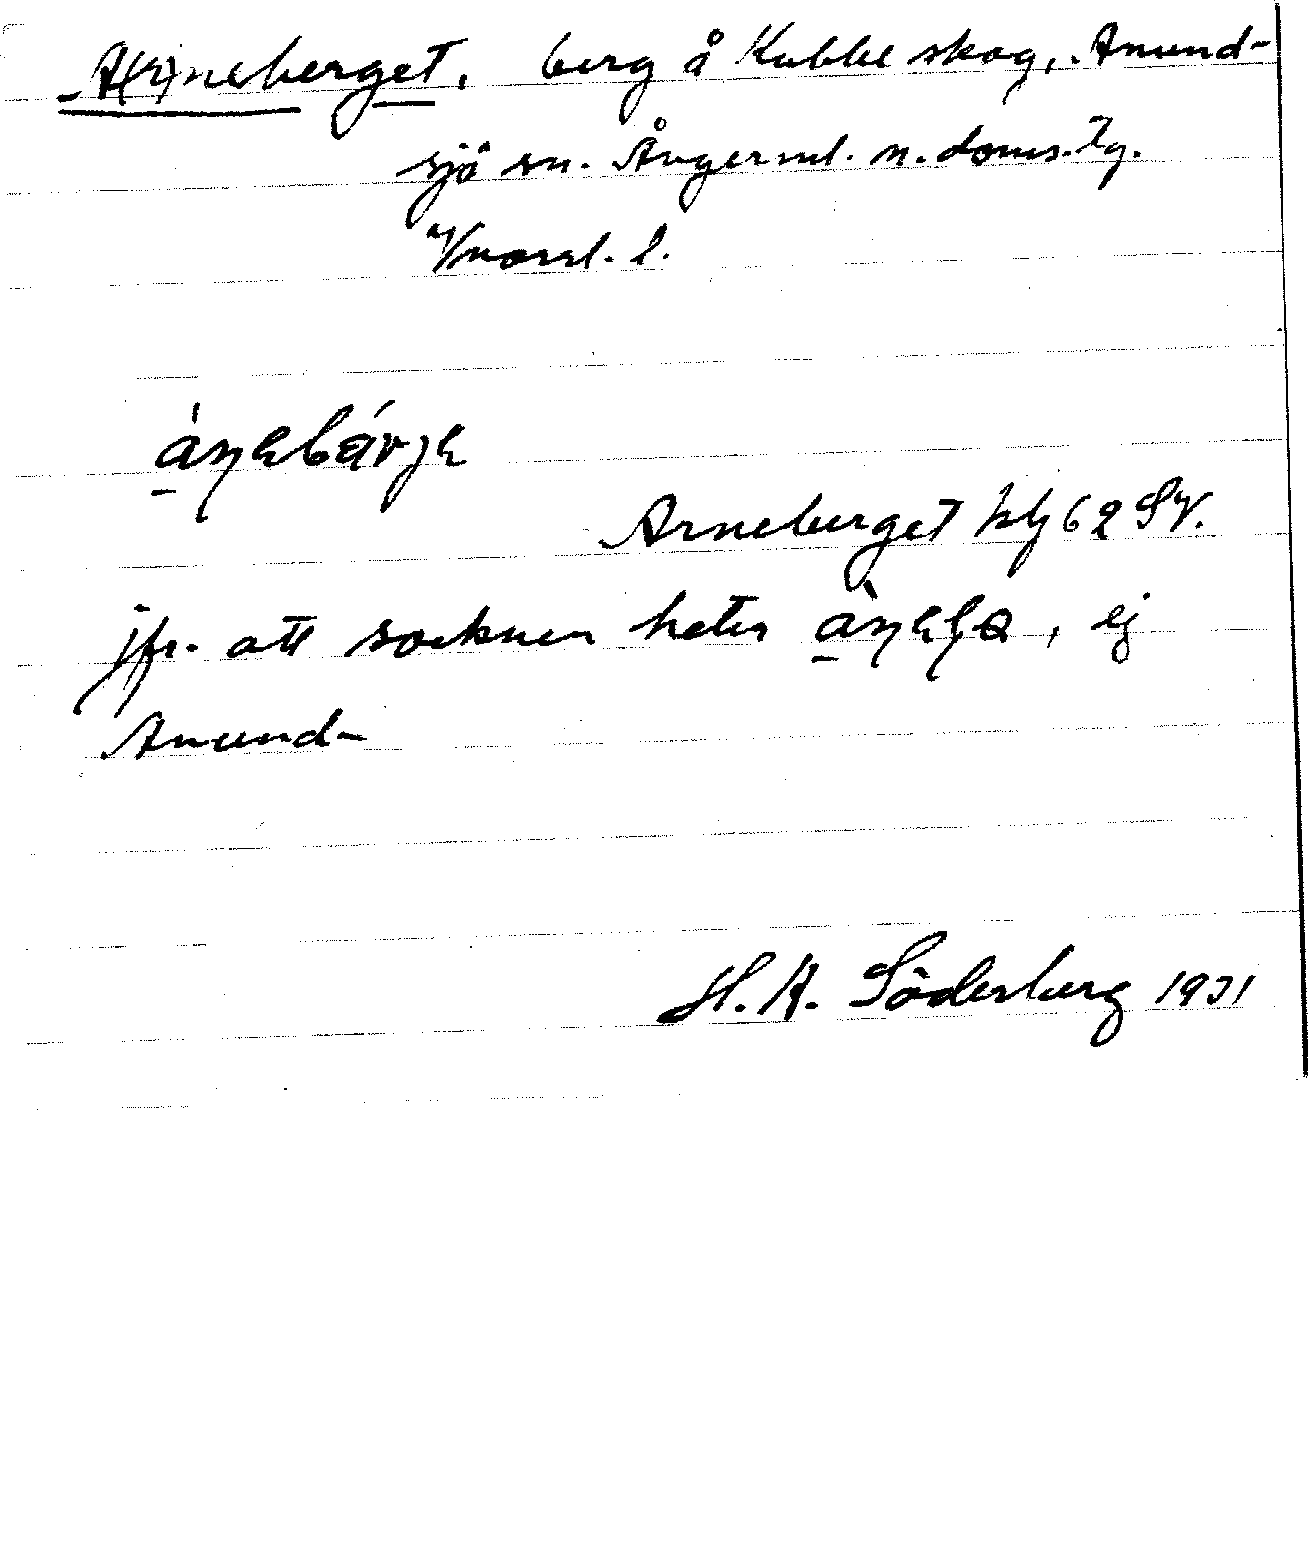 A(r)neberget, berg å Kubbe skog, Anund-
sjö sn. Ångerml. n. doms. tg.
Vnorrl. l.
Arneberget hlj 62 SV.
jfr. att socknen heter , ej
Anund-
H. A. Söderberg 1931